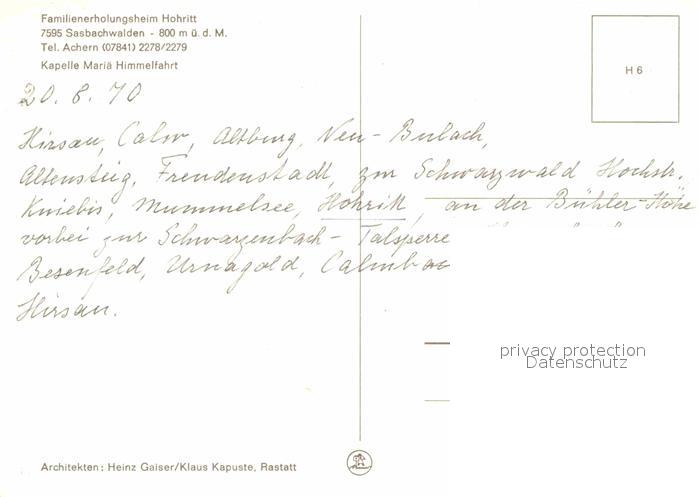 Familienerholungsheim Hohritt
7595 Sasbachwalden - 800 m ü. d. M.
Tel. Achern (07841) 2278/2279
Kapelle Mariä Himmelfahrt
H 6
20. 8. 70
Hirsau, Calw, Altburg, Neu-Bulach,
Altensteig, Freudenstadt, zur Schwarzwald Hochstr.
Kniebis, Mummelsee, Hohritt, an der Bühler-Höhe
vorbei zur Schwarzenbach-Talsperre
Besenfeld, Urnagold, Calmbac
Hirsau.
privacy protection
Datenschutz
Architekten: Heinz Gaiser/Klaus Kapuste, Rastatt